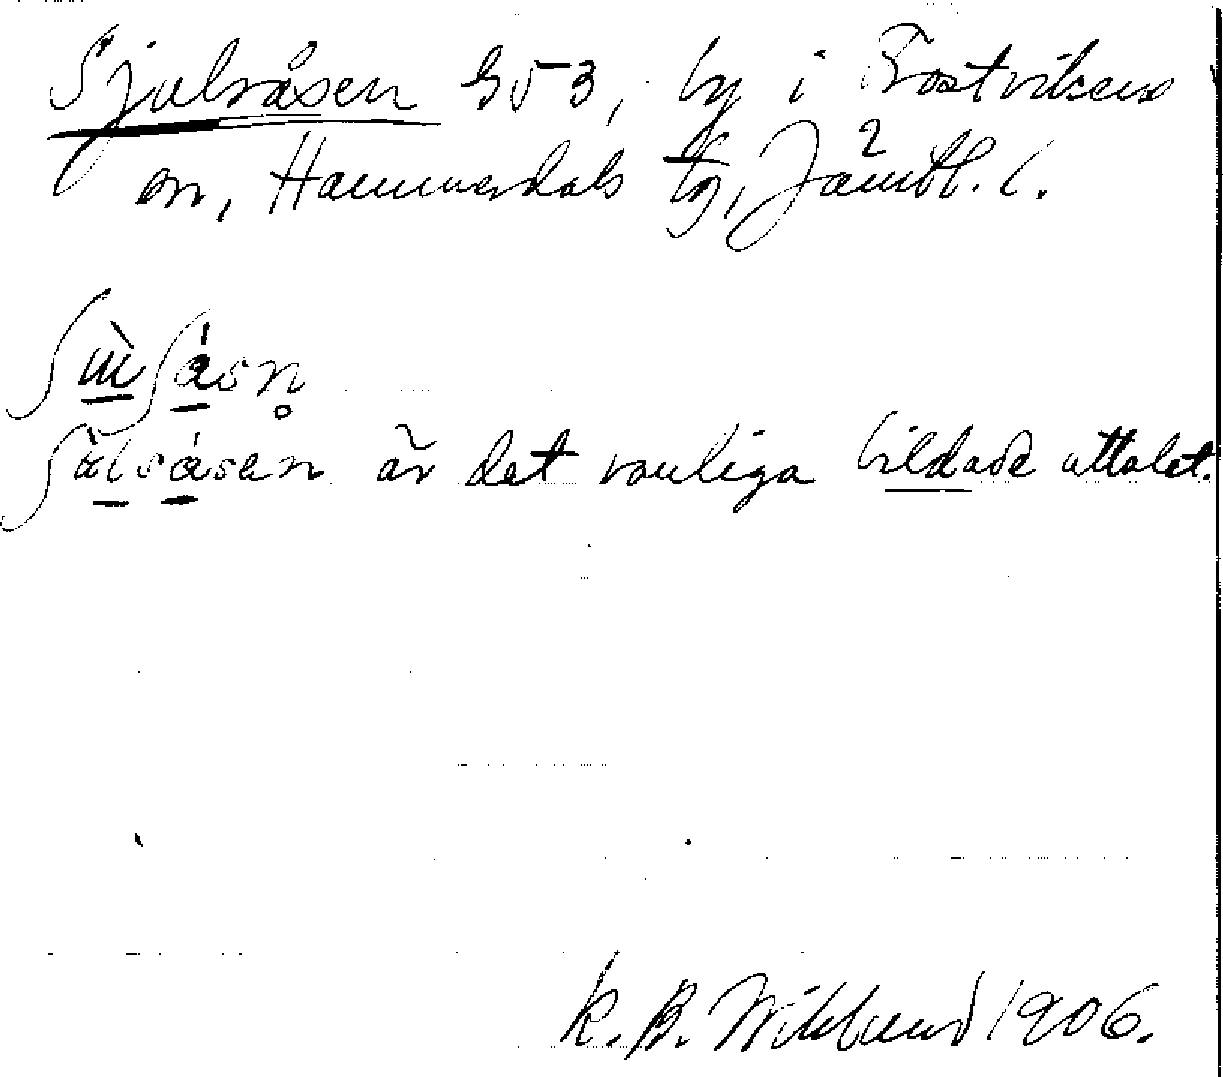 Sjulsåsen G53, by i Frostvikens
sn, Hammerdals tg, Jämtl. l.
2
ʃɯ̀ʃásn̥
ʃälsásen är det vanliga bildade uttalet.
K. B. Wiklund 1906.